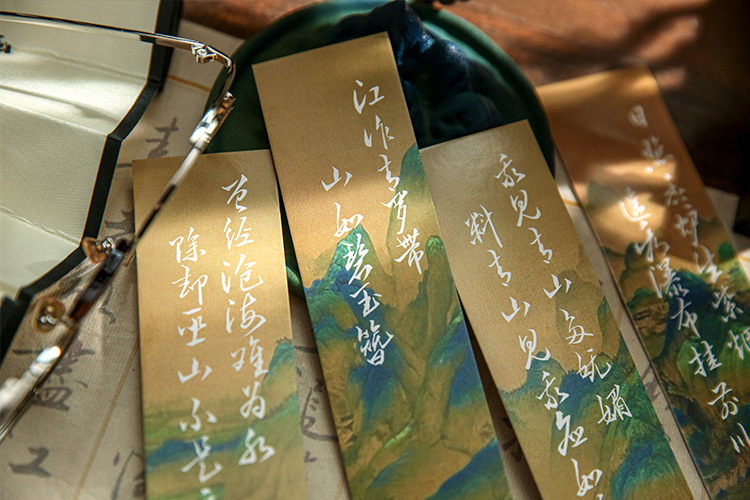 曾经沧海难为水
除却巫山不是
江作青罗带
山如碧玉簪
我见青山多妩媚
料青山见我应如
日照香炉生紫烟
遥看瀑布挂前川